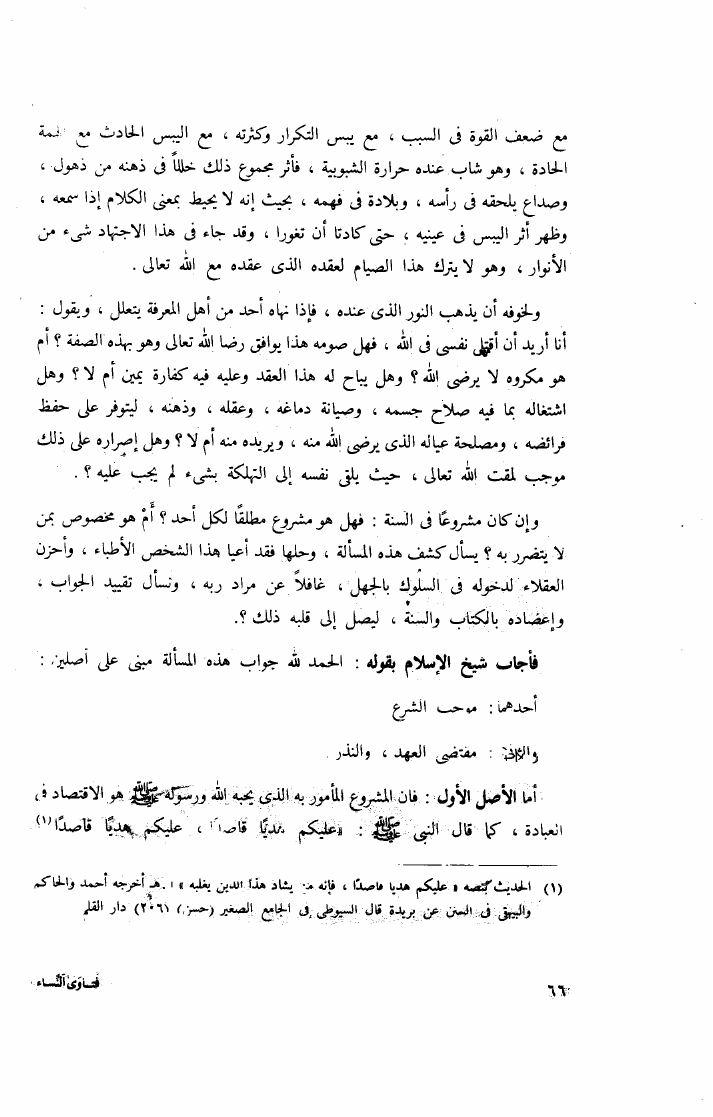 مع ضعف القوة فى السبب ، مع يبس التكرار وكثرته ، مع اليبس الحادث مع الهمة
الحادة ، وهو شاب عنده حرارة الشبوبية ، فأثر مجموع ذلك خللاً فى ذهنه من ذهول ،
وصداع يلحقه فى رأسه ، وبلادة فى فهمه ، بحيث إنه لا يحيط بمعنى الكلام إذا سمعه ،
وظهر أثر اليبس فى عينيه ، حتى كادتا أن تغورا ، وقد جاء فى هذا الاجتهاد شىء من
الأنوار ، وهو لا يترك هذا الصيام لعقده الذى عقده مع الله تعالى .
ولخوفه أن يذهب النور الذى عنده ، فإذا نهاه أحد من أهل المعرفة يتعلل ، ويقول :
أنا أريد أن أقتل نفسى فى الله ، فهل صومه هذا يوافق رضا الله تعالى وهو بهذه الصفة ؟ أم
هو مكروه لا يرضى الله ؟ وهل يباح له هذا العقد وعليه فيه كفارة يمين أم لا ؟ وهل
اشتغاله بما فيه صلاح جسمه ، وصيانة دماغه ، وعقله ، وذهنه ، ليتوفر على حفظ
فرائضه ، ومصلحة عياله الذى يرضى الله منه ، ويريده منه أم لا ؟ وهل إصراره على ذلك
موجب لمقت الله تعالى ، حيث يلقى نفسه إلى التهلكة بشىء لم يجب عليه ؟ .
وإن كان مشروعًا فى السنة : فهل هو مشروع مطلقًا لكل أحد ؟ أَمْ هو مخصوص بمن
لا يتضرر به ؟ يسأل كشف هذه المسألة ، وحلها فقد أعيا هذا الشخص الأطباء ، وأحزن
العقلاء لدخوله فى السلوك بالجهل ، غافلاً عن مراد ربه ، ونسأل تقييد الجواب ،
وإعضاده بالكتاب والسنة ، ليصل إلى قلبه ذلك ؟.
فأجاب شيخ الإسلام بقوله : الحمد لله جواب هذه المسألة مبنى على أصلين :
أحدهما : موجب الشرع
والثانى : مقتضى العهد ، والنذر .
أما الأصل الأول : فان المشروع المأمور به الذى يحبه الله ورسوله ﷺ هو الاقتصاد فى
العبادة ، كما قال النبى ﷺ : «عليكم هديًا قاصدًا ، عليكم هديًا قاصدًا(١)
(١) الحديث بنصه « عليكم هديا قاصدًا ، فإنه من يشاد هذا الدين يغلبه » ا . هـ أخرجه أحمد والحاكم
والبيهقى فى السنن عن بريدة قال السيوطى فى الجامع الصغير (حسن) (٢٠٦١) دار القلم
٦٦
فتاوى النساء